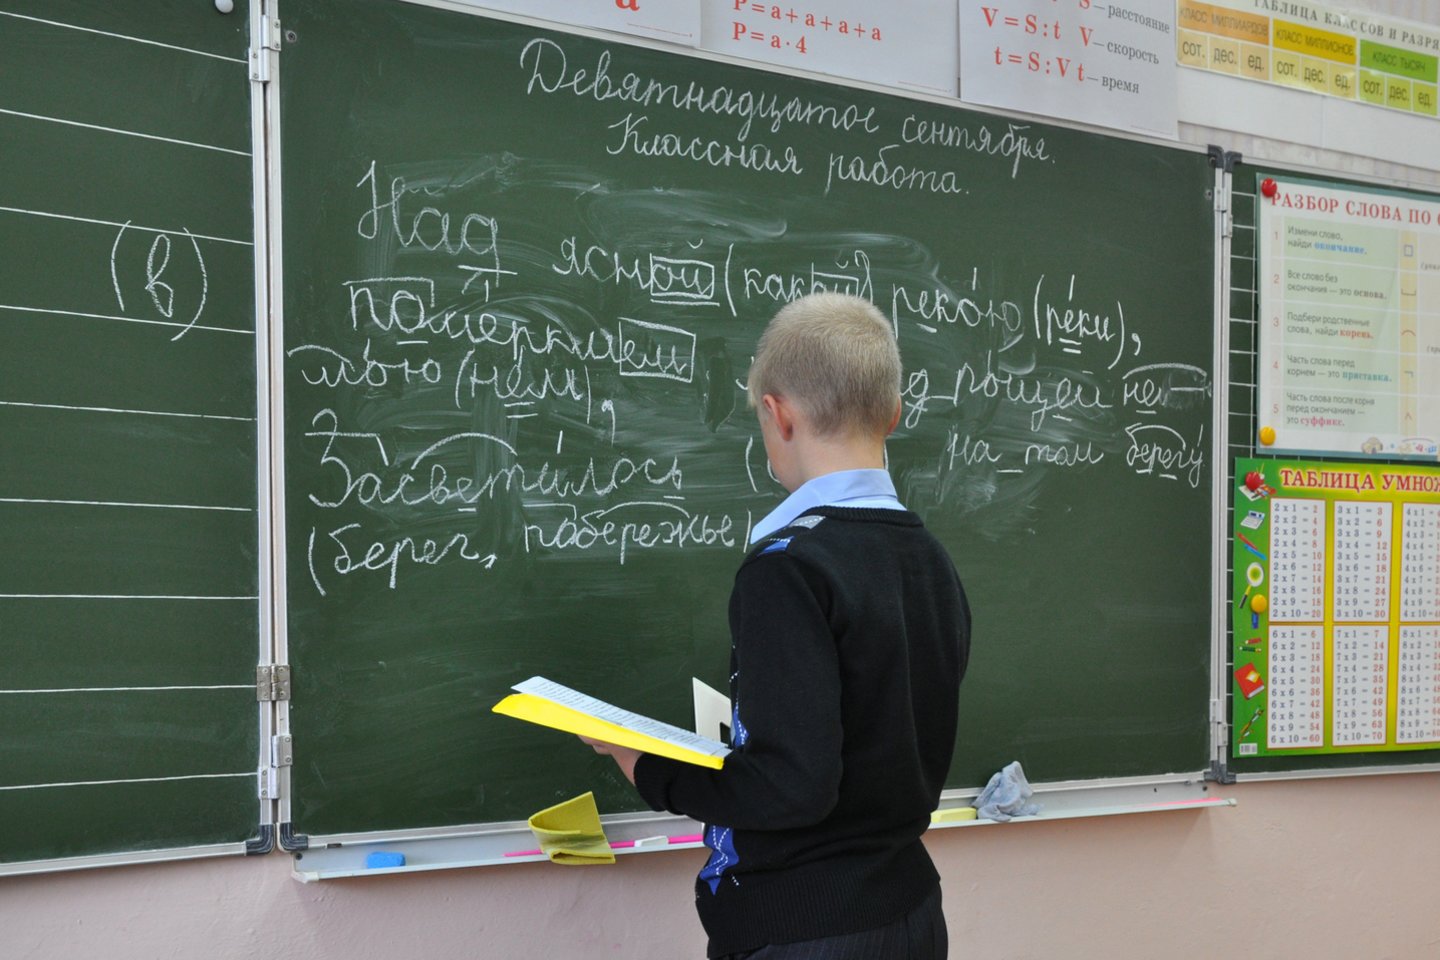 (в)
Девятнадцатое сентября.
Классная работа.
Над ясной (какой) рекою (реки),
померкшем
тьою (нем),
рощей
Засветилось
на том берегу
(берег, побережье)
а
P=a+a+a+a
P=a·4
S — расстояние
V=S:t V — скорость
t=S:V t — время
ТАБЛИЦА КЛАССОВ И РАЗРЯ
КЛАСС МИЛЛИАРДОВ КЛАСС МИЛЛИОНОВ КЛАСС ТЫСЯЧ
СОТ. ДЕС. ЕД. СОТ. ДЕС. ЕД. СОТ. ДЕС. ЕД.
РАЗБОР СЛОВА ПО С
1 Измени слово,
найди окончание.
2 Все слово без
окончания — это основа.
3 Подбери родственные
слова, найди корень.
4 Часть слова перед
корнем — это приставка.
5 Часть слова после корня
перед окончанием —
это суффикс.
ТАБЛИЦА УМНОЖ
2 x 1 = 2 3 x 1 = 3 4 x 1
2 x 2 = 4 3 x 2 = 6 4 x 2
2 x 3 = 6 3 x 3 = 9 4 x 3
2 x 4 = 8 3 x 4 = 12 4 x 4
2 x 5 = 10 3 x 5 = 15 4 x 5
2 x 6 = 12 3 x 6 = 18 4 x 6
2 x 7 = 14 3 x 7 = 21 4 x 7
2 x 8 = 16 3 x 8 = 24 4 x 8
2 x 9 = 18 3 x 9 = 27 4 x 9
2 x 10 = 20 3 x 10 = 30 4 x 10
6 x 1 = 6 7 x 1 = 7 8 x 1
6 x 2 = 12 7 x 2 = 14 8 x 2
6 x 3 = 18 7 x 3 = 21 8 x 3
6 x 4 = 24 7 x 4 = 28 8 x 4
6 x 5 = 30 7 x 5 = 35 8 x 5
6 x 6 = 36 7 x 6 = 42 8 x 6
6 x 7 = 42 7 x 7 = 49 8 x 7
6 x 8 = 48 7 x 8 = 56 8 x 8
6 x 9 = 54 7 x 9 = 63 8 x 9
6 x 10 = 60 7 x 10 = 70 8 x 10